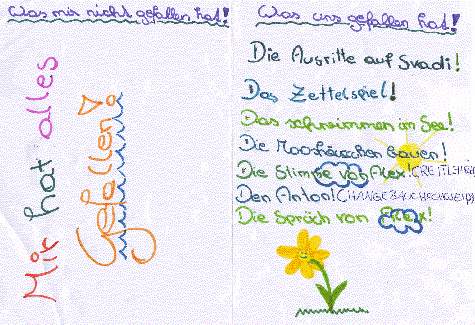 Was mir nicht gefallen hat!
Mir hat alles
Gefallen!
Was uns gefallen hat!
Die Ausritte auf Svadi!
Das Zettelspiel!
Das schwimmen im See!
Die Mooshäuschen bauen!
Die Stimme von Alex!
Den Anton!
Die Sprüch von Alex!